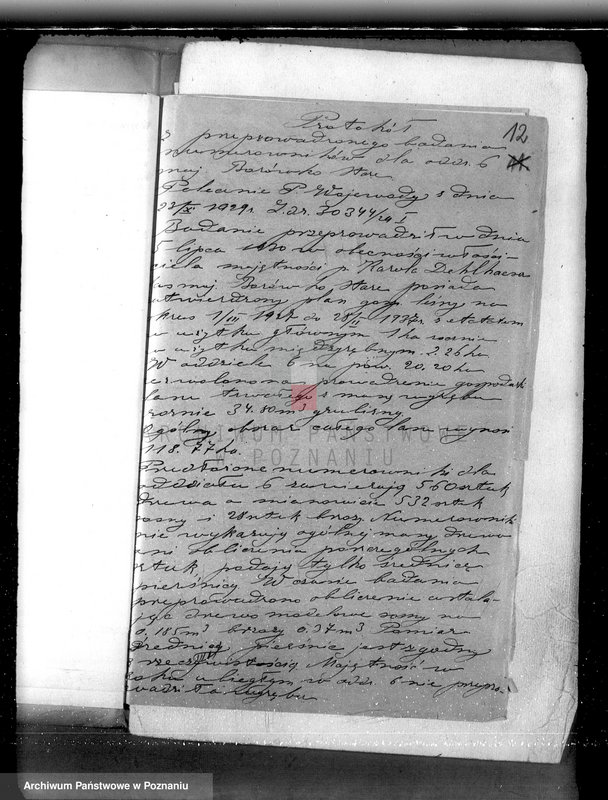 12
Protokół
z przeprowadzonego badania
numerowników dla oddz. 6
maj. Borówko stare
Polecenie P. Wojewody z dnia
1929r L.dz. 30344/29 I
Badanie przeprowadził w dniu
5 lipca 1930 w obecności właści-
ciela majętności p. Karola Dehlhaesa
maj Borówko stare posiada
zatwierdzony plan gosp. leśny na
okres 1/IV 1927 do 1937r z etatem
w użytku głównym 1 ha rocznie
w użytku międzyrębnym 2.26 ha
W oddziele pow. 20.20 ha
zezwolono na prowadzenie gospodarki
lanu z masą wyrębu
rocznie 34.80 m³ grubizny.
Ogólny obszar całego lasu wynosi
118.77 ha.
Przedłożone numerowniki dla
oddziału 6 zawierają 560 sztuk
drzewa a mianowicie 532 sztuk
sosny i 28 sztuk brzoz. Numerowniki
nie wykazują ogólnej masy drzewa
ani obliczenia poszczególnych
sztuk, podają tylko średnicę
pierśnicy. W czasie badania
przeprowadzono obliczenie ustala-
jąc drzewo modelowe sosny na
0.185 m³ brzozy 0.37 m³ Pomiar
średnicy pierśnic jest zgodny
z rzeczywistością. Majętność w
roku ubiegłym w oddz. 6 nie przepro-
wadziła wyrębu
ARCHIWUM PAŃSTWOWE
W POZNANIU
Archiwum Państwowe w Poznaniu